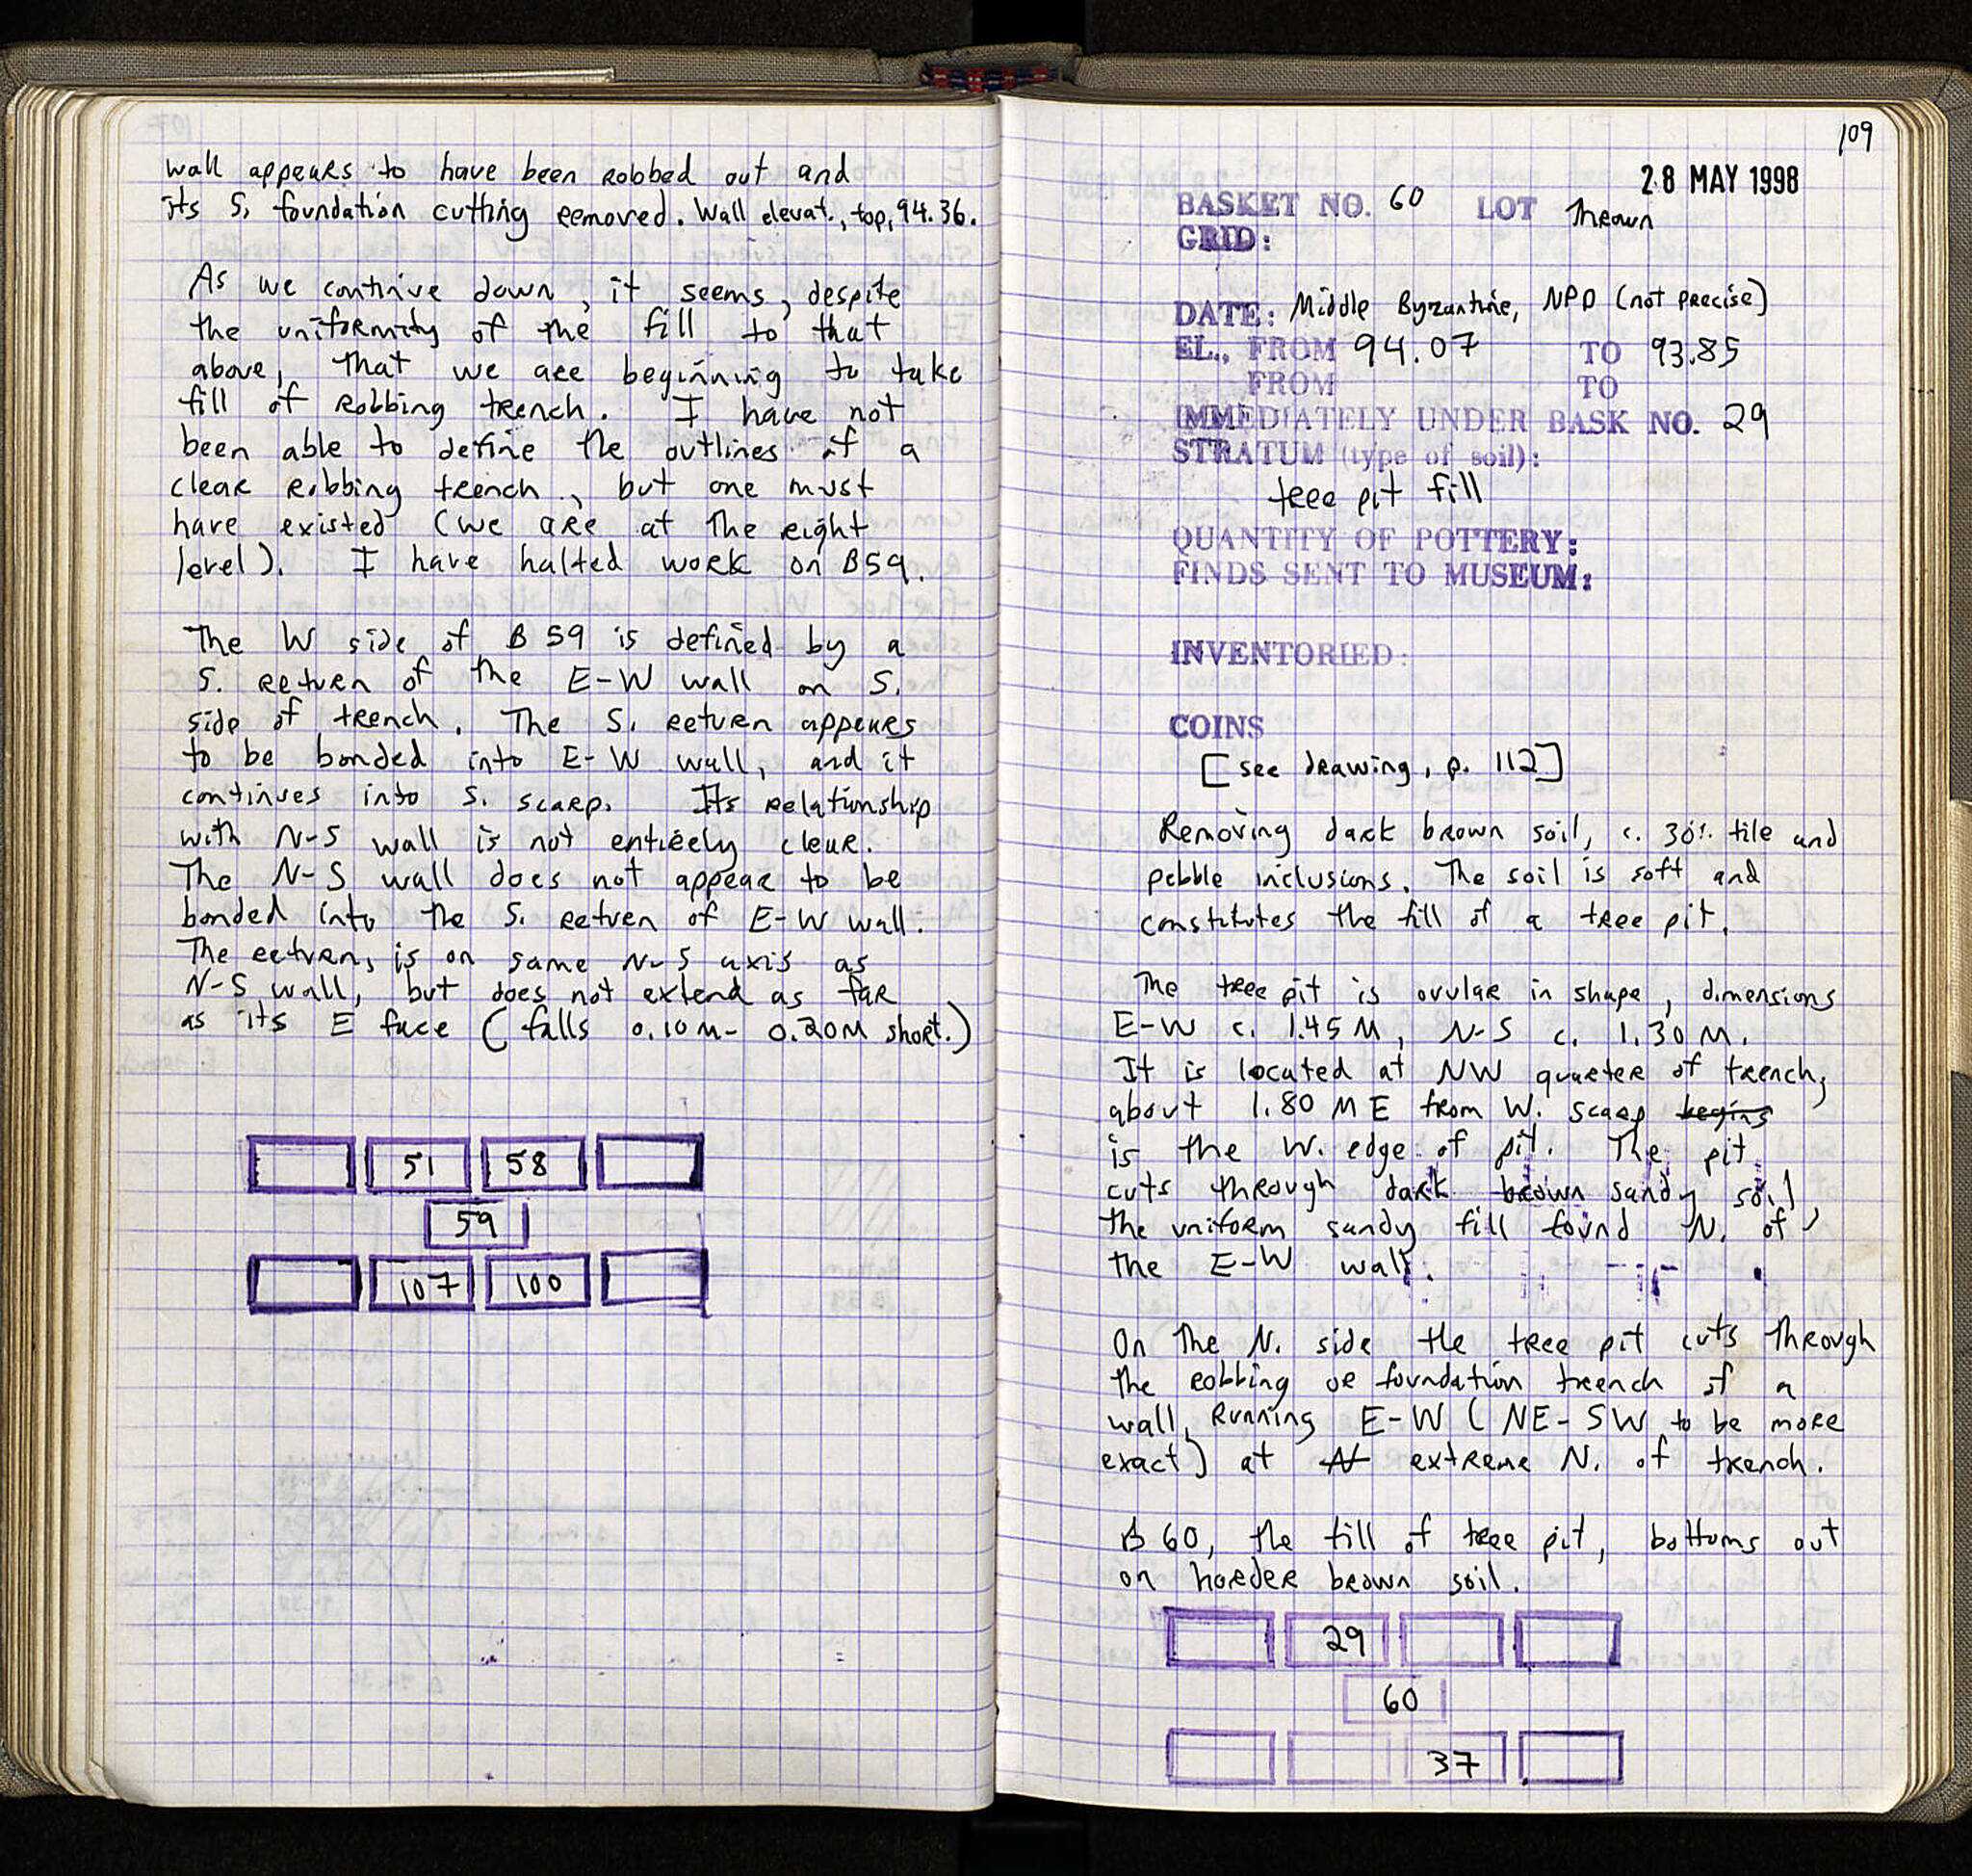 wall appears to have been robbed out and
its S. foundation cutting removed. Wall elevat., top, 94.36.
As we continue down, it seems, despite
the uniformity of the fill to that
above, that we are beginning to take
fill of robbing trench. I have not
been able to define the outlines of a
clear robbing trench, but one must
have existed (we are at the right
level). I have halted work on B59.
The W side of B 59 is defined by a
S. return of the E-W wall on S.
side of trench. The S. return appears
to be bonded into E-W wall, and it
continues into S. scarp. Its relationship
with N-S wall is not entirely clear.
The N-S wall does not appear to be
bonded into the S. return of E-W wall.
The return, is on same N-S axis as
N-S wall, but does not extend as far
as its E face (falls 0.10M- 0.20M short.)
51 58
59
107 100
109
28 MAY 1998
BASKET NO. 60 LOT Thrown
GRID:
DATE: Middle Byzantine, NPD (not precise)
EL., FROM 94.07 TO 93.85
FROM TO
IMMEDIATELY UNDER BASK NO. 29
STRATUM (type of soil):
tree pit fill
QUANTITY OF POTTERY:
FINDS SENT TO MUSEUM:
INVENTORIED:
COINS
[see drawing, p. 112]
Removing dark brown soil, c. 30% tile and
pebble inclusions. The soil is soft and
constitutes the fill of a tree pit.
The tree pit is ovular in shape, dimensions
E-W c. 1.45 M, N-S c. 1.30 M.
It is located at NW quarter of trench,
about 1.80 M E from W. scarp begins
is the W. edge of pit. The pit
cuts through dark brown sandy soil,
the uniform sandy fill found N. of
the E-W wall.
On the N. side the tree pit cuts through
the robbing or foundation trench of a
wall, running E-W (NE-SW to be more
exact) at N extreme N. of trench.
B 60, the fill of tree pit, bottoms out
on harder brown soil.
29
60
37